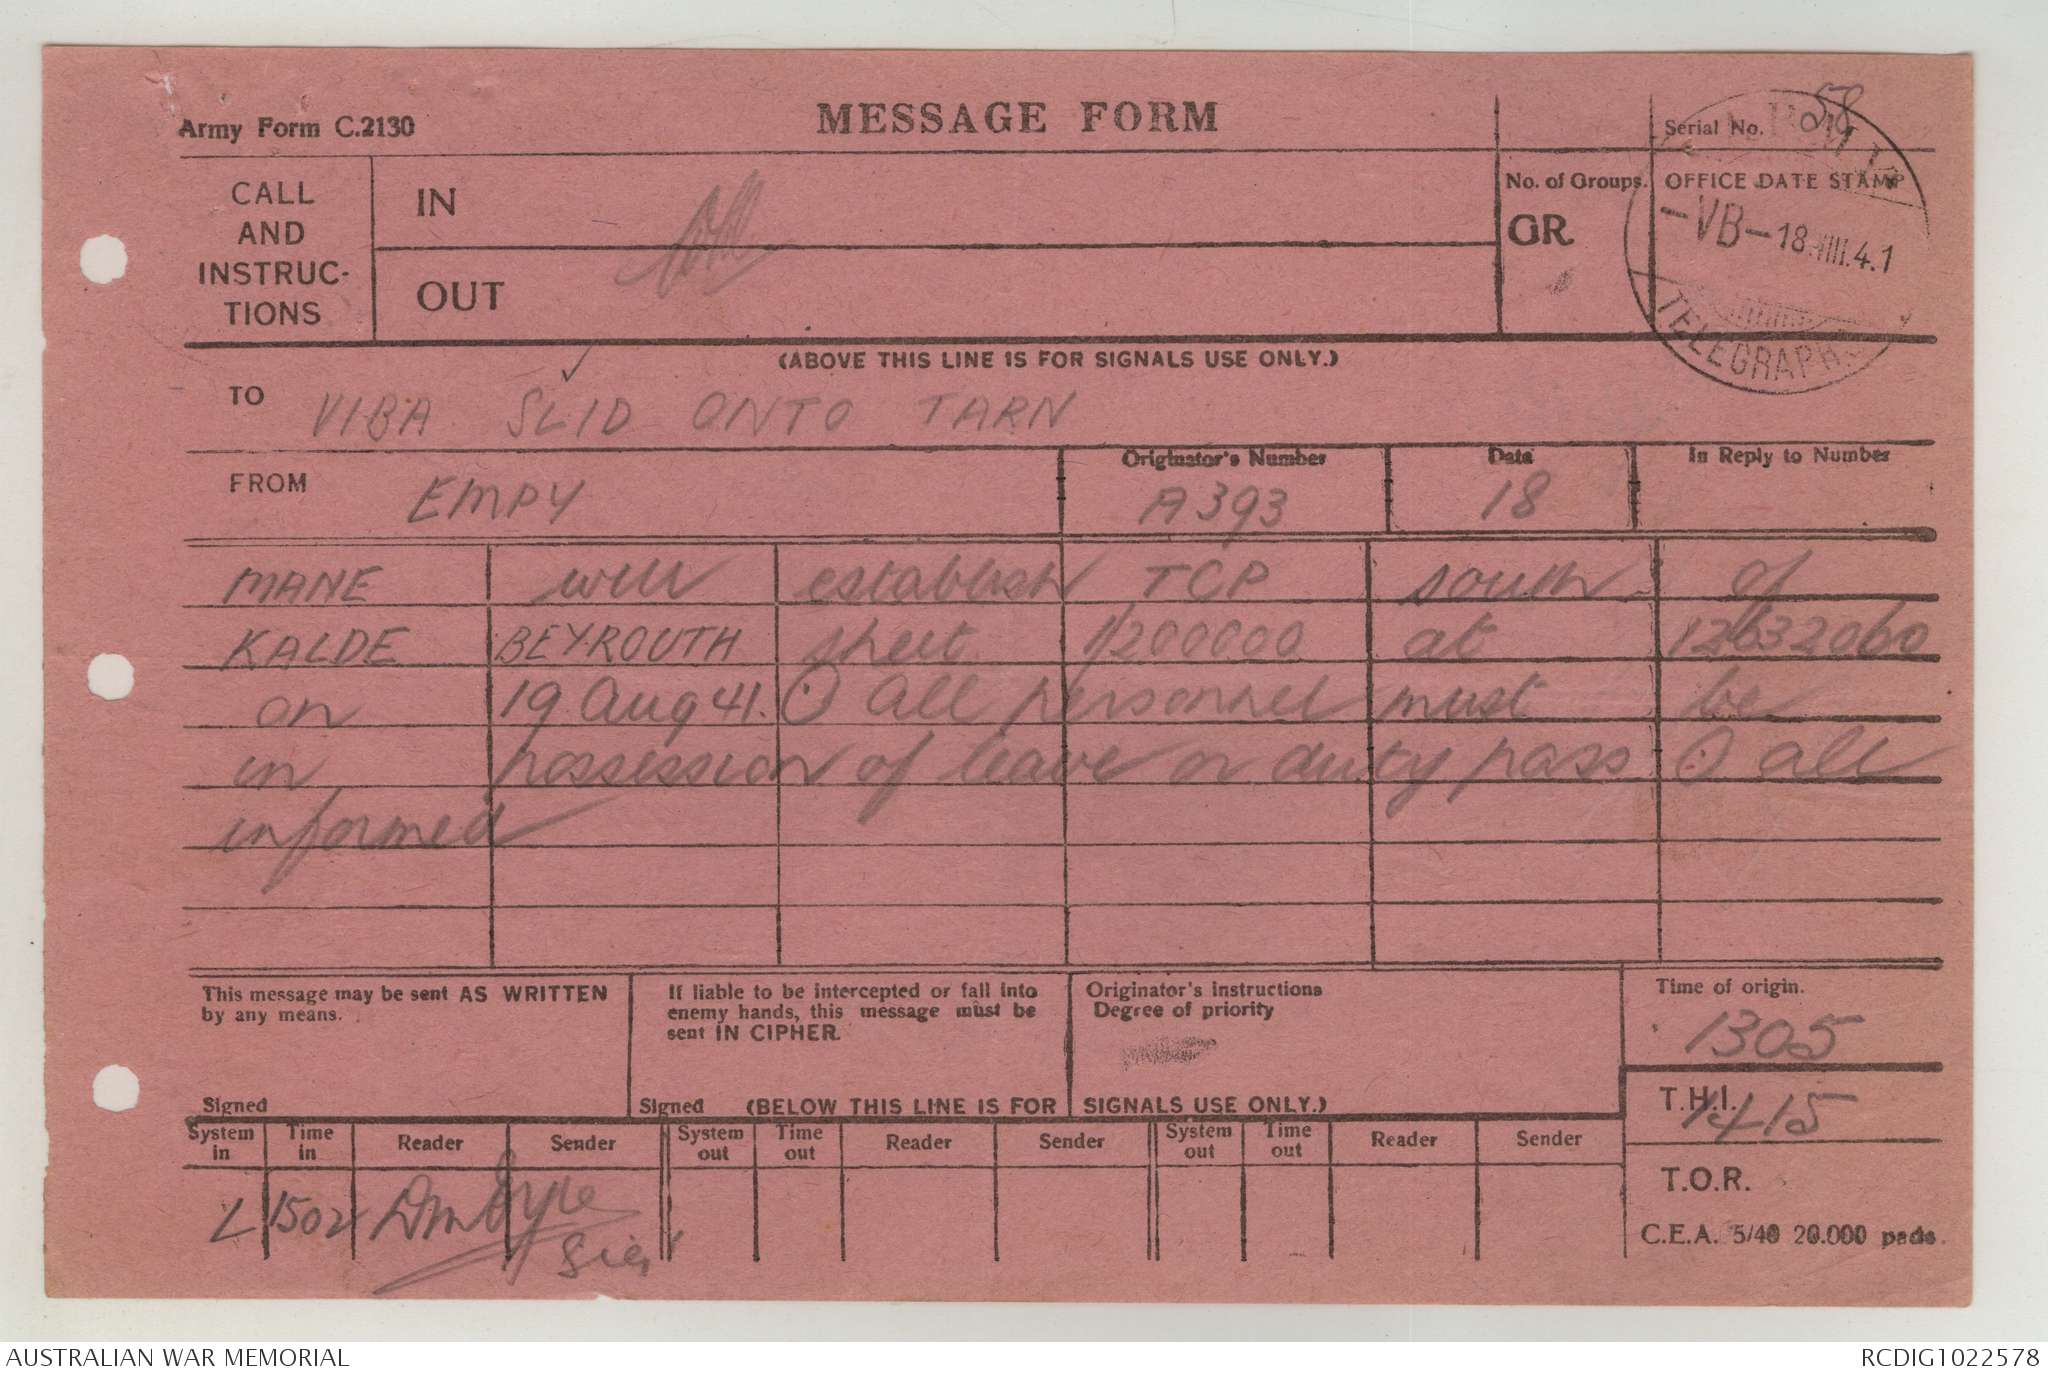 Army Form C.2130
MESSAGE FORM
Serial No. 58
CALL AND INSTRUC-TIONS
IN
OUT
No. of Groups.
GR.
OFFICE DATE STAMP
-VB-18.VIII.4.1
TELEGRAPHS
(ABOVE THIS LINE IS FOR SIGNALS USE ONLY.)
TO VIBA SLID ONTO TARN
FROM EMPY
Originator's Number A393
Date 18
In Reply to Number
MANE will establish TCP south of
KALDE BEYROUTH sheet 1/200000 at 12632060
on 19 Aug 41. ⊙ all personnel must be
in possession of leave or duty pass ⊙ all
informed
This message may be sent AS WRITTEN
by any means.
Signed
If liable to be intercepted or fall into
enemy hands, this message must be
sent IN CIPHER.
Signed
Originator's instructions
Degree of priority
Time of origin.
1305
T.H.I.
1415
T.O.R.
(BELOW THIS LINE IS FOR SIGNALS USE ONLY.)
System in Time in Reader Sender System out Time out Reader Sender System out Time out Reader Sender
L 1502
C.E.A. 5/40 20.000 pads.
AUSTRALIAN WAR MEMORIAL
RCDIG1022578